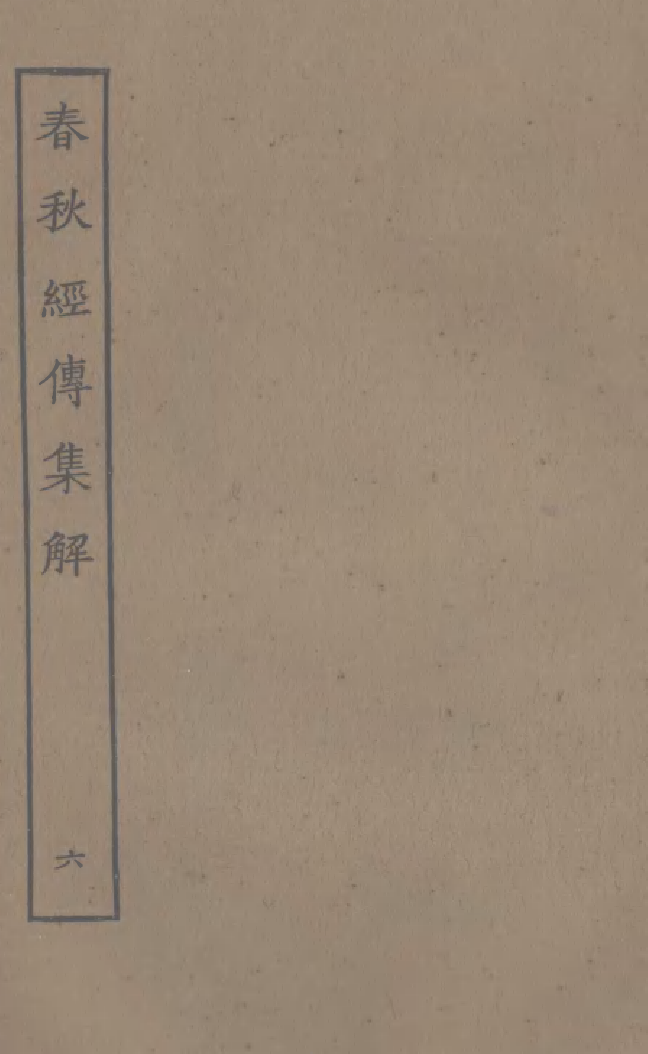 春秋經傳集解
六